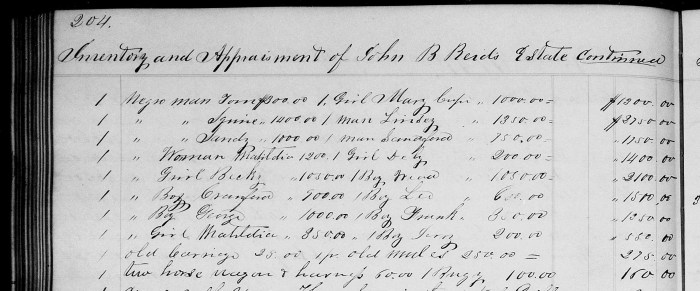 204.
Inventory and Appraisment of John B Reids Estate Continued
1 Negro man Tom $300.00 1 Girl Mary " 1000.00 = $1300.00
1 " " Squire " 1400.00 1 man Linsey " 1350.00 = " 2750.00
1 " " Sandy " 1000.00 1 man Sandford " 750.00 = " 1750.00
1 " Woman Matildia 1200. 1 Girl " 200.00 = " 1400.00
1 " Girl Beck " 1050.00 1 Boy " 1050.00 = " 2100.00
1 " Boy Crawford " 900.00 1 Boy Leo " 600.00 " 1500.00
1 " Boy George " 1000.00 1 Boy Frank " 350.00 " 1350.00
1 " Girl Matildia " 350.00 1 Boy Jerry 200.00 " 550.00
1 old Carriage 25.00 1 pr. old mules 250.00 = " 275.00
1 two horse wagon & harness 60.00 1 Buggy 100.00 " 160.00